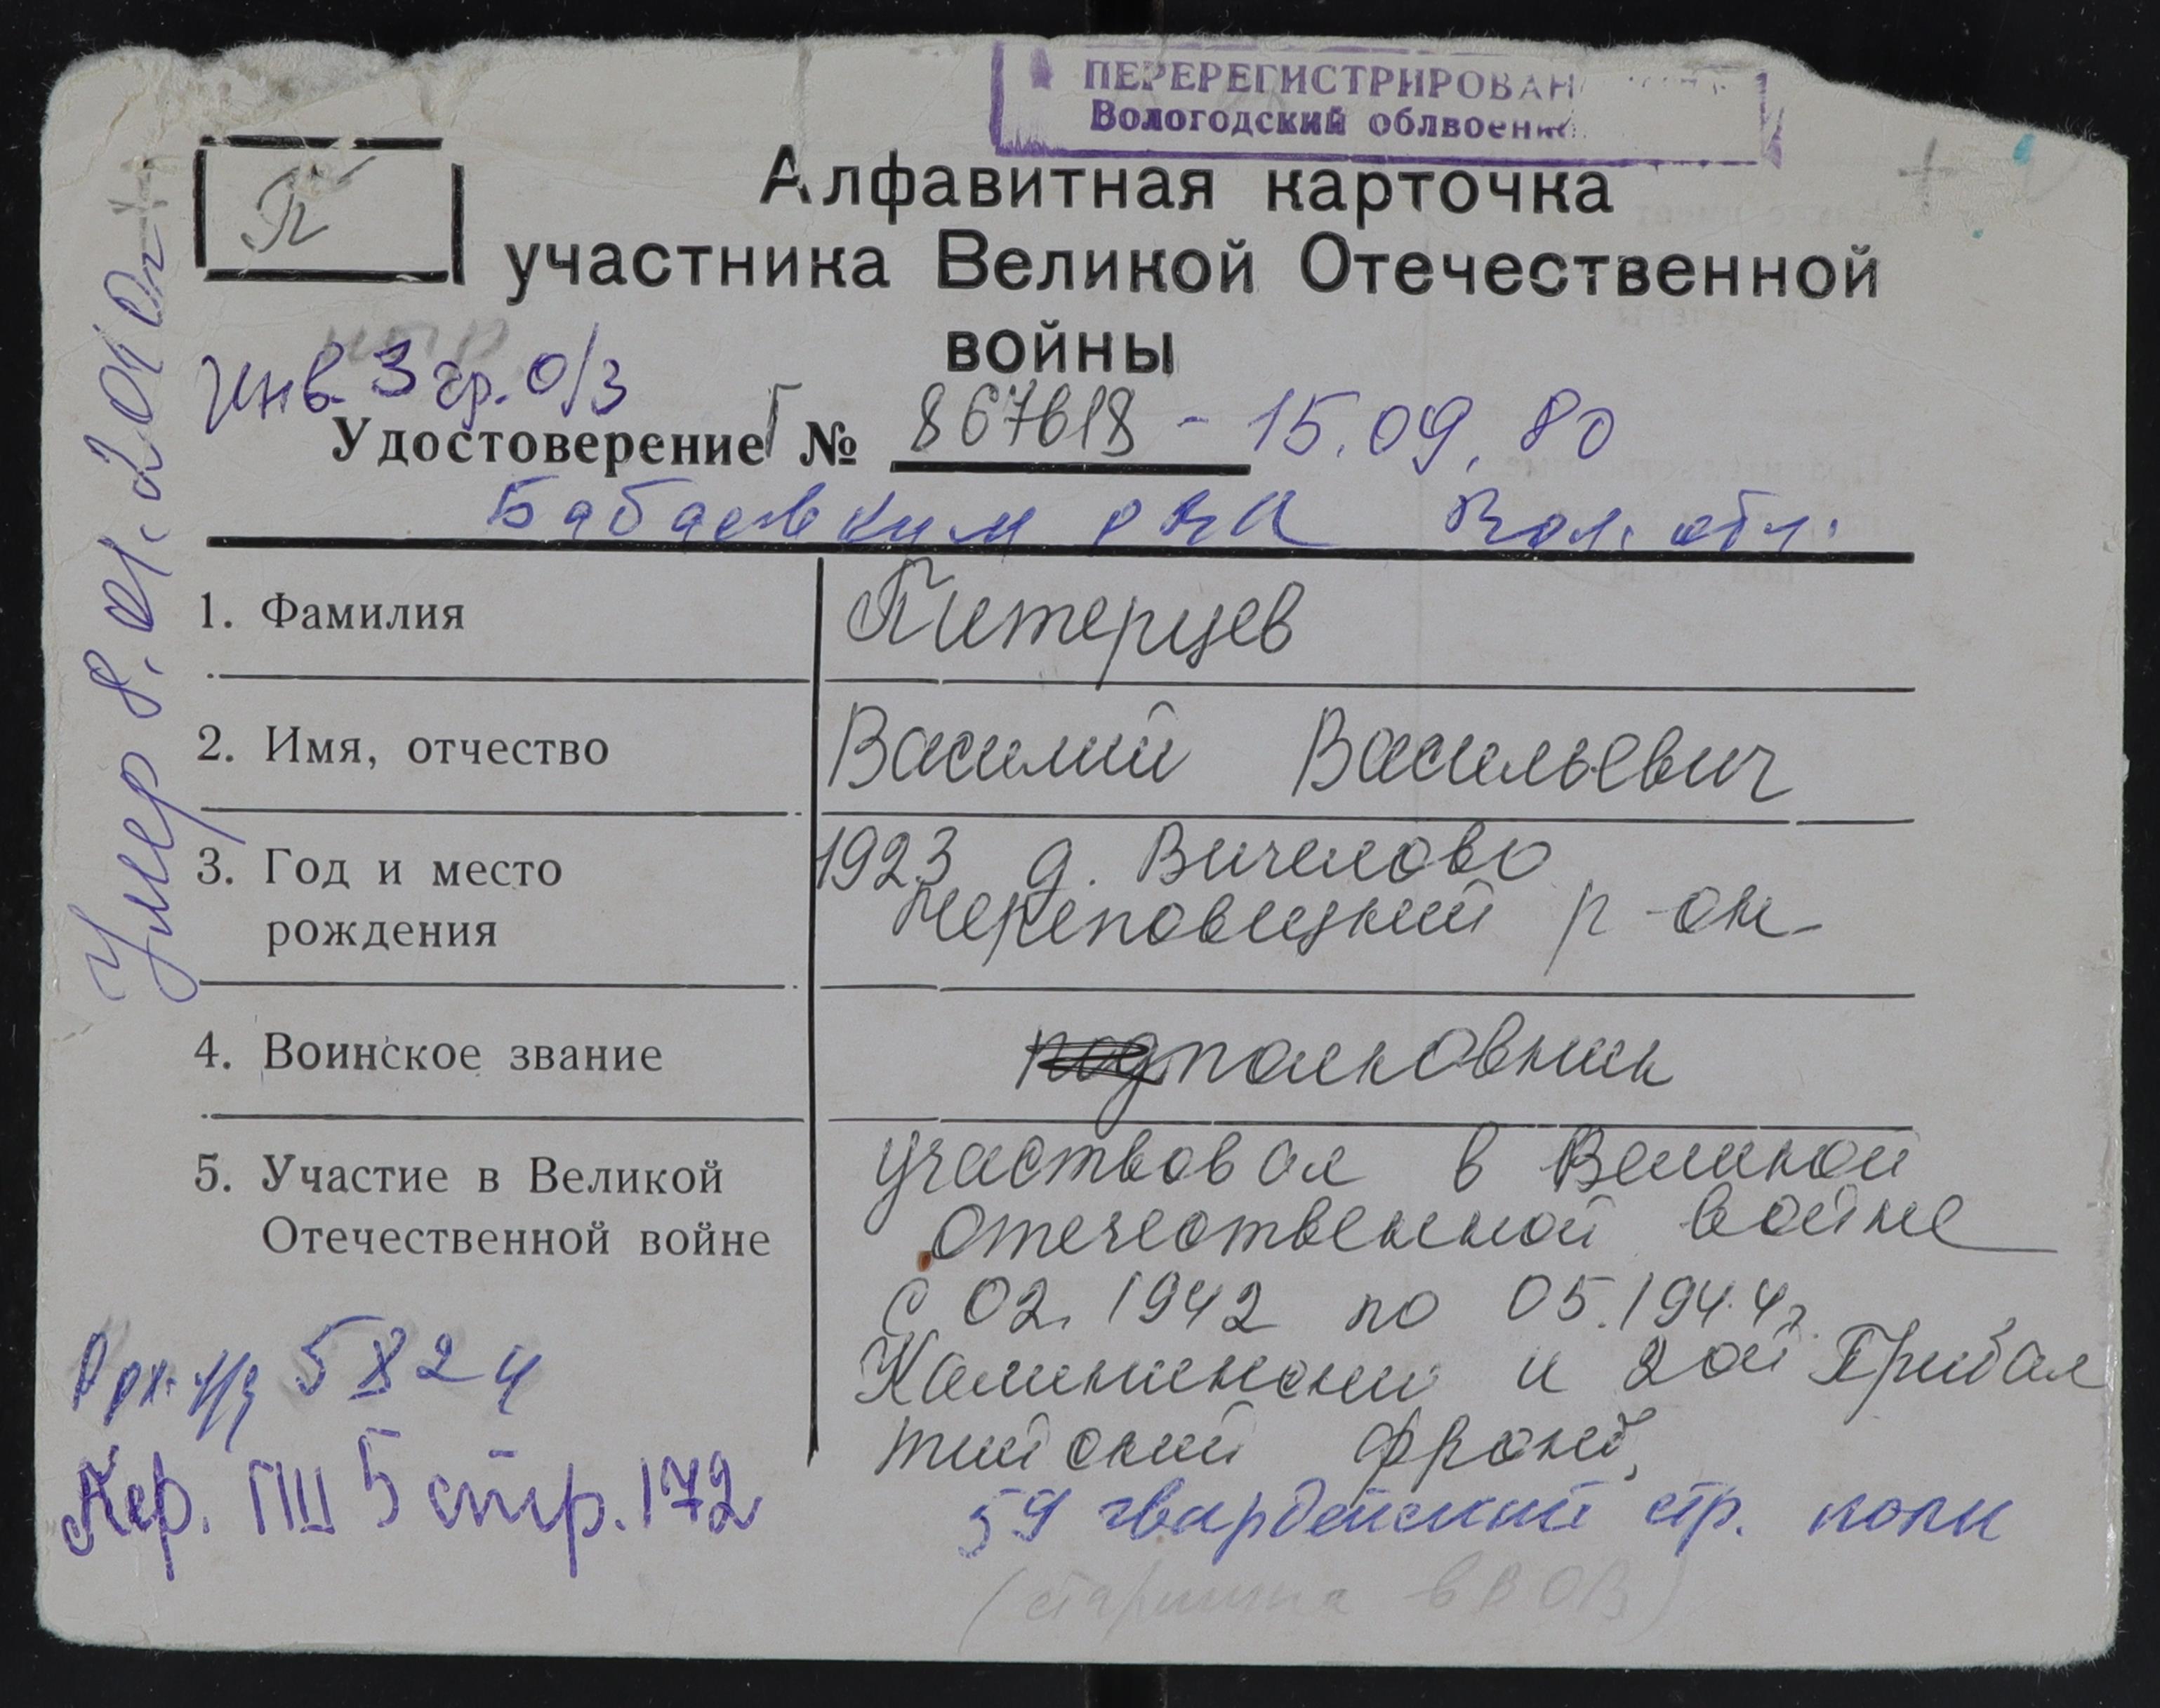 ПЕРЕРЕГИСТРИРОВАН
Вологодский облвоенк
Алфавитная карточка
П
участника Великой Отечественной
войны
Инв. 3 гр. О/З
Удостоверение Г № 867618 - 15.09.80
Бабаевским РВК Вол. обл.
Умер 8.01.2010г
1. Фамилия Питерцев
2. Имя, отчество Василий Васильевич
3. Год и место 1923 д. Вичелово
рождения Череповецкий р-он
4. Воинское звание подполковник
5. Участие в Великой участвовал в Великой
Отечественной войне Отечественной войне
с 02.1942 по 05.1944г.
Калининский и 2ой Прибал
тийский фронт,
5824
59 гвардейский стр. полк
ПШ 5 стр. 172
(старшина в ВОВ)